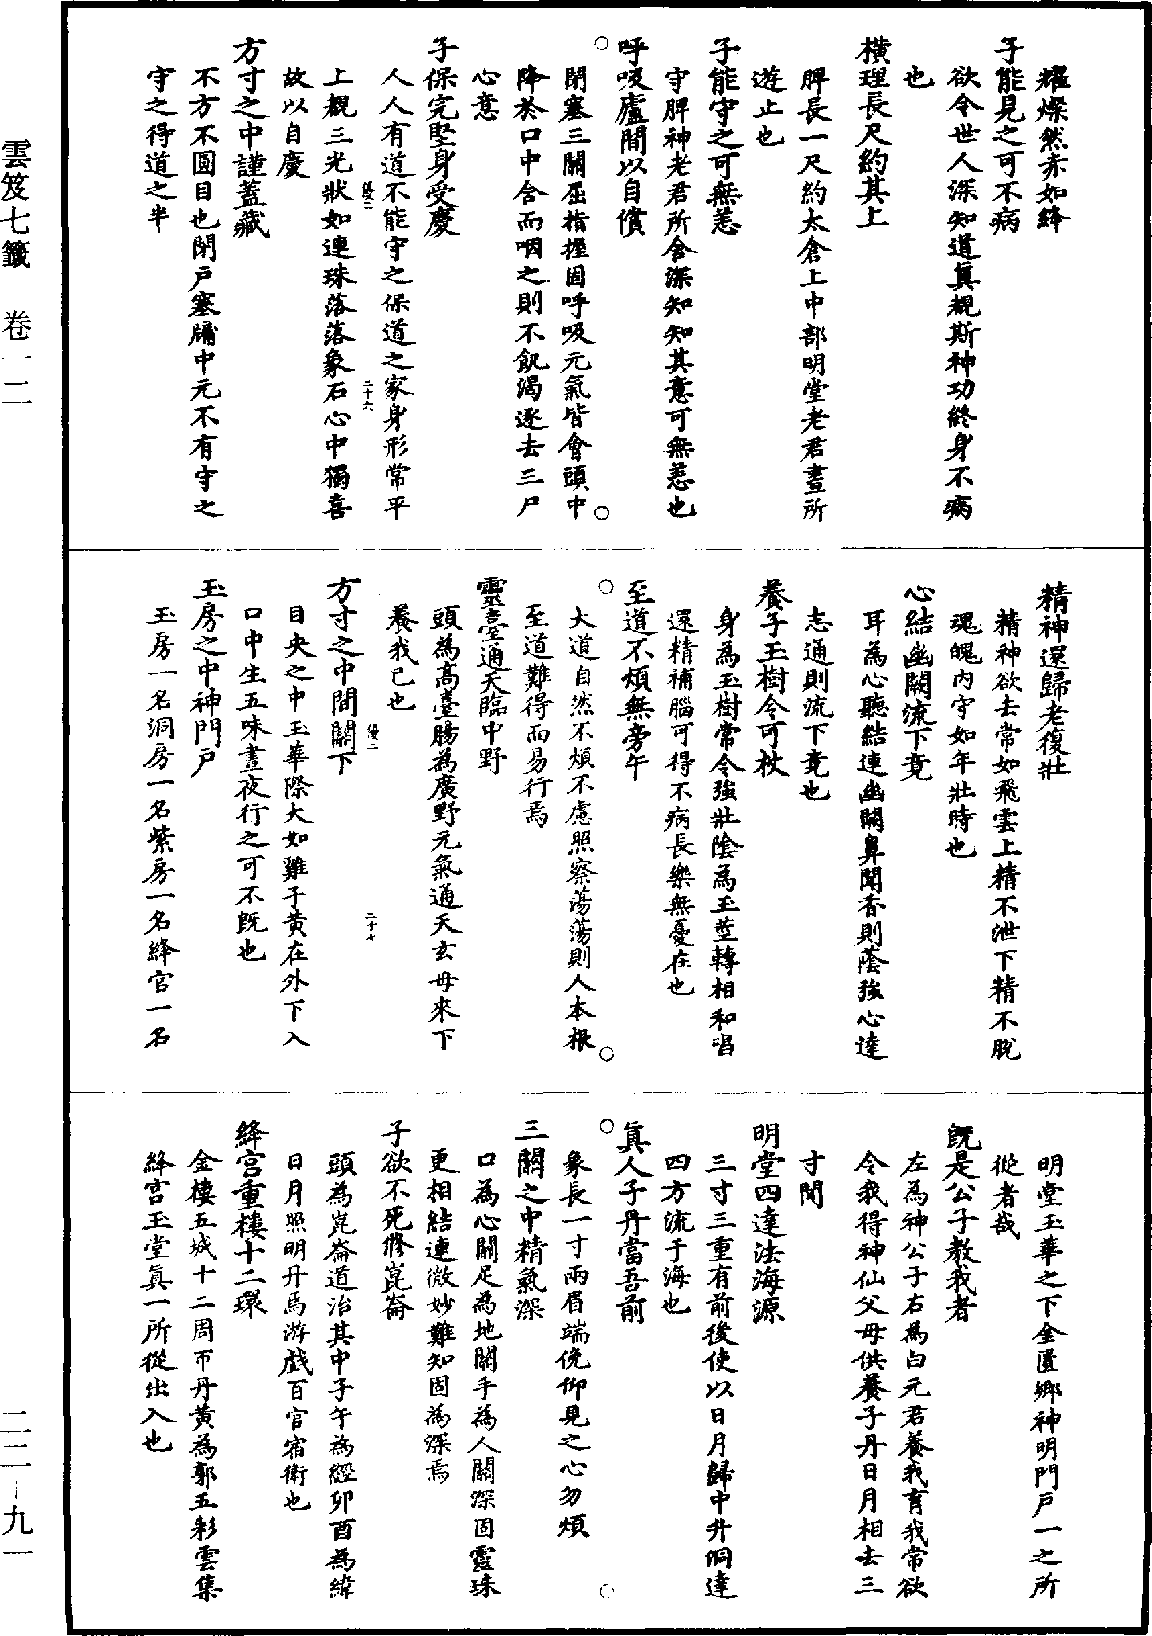 耀燦然赤如絳
子能見之可不病
欲令世人深知道真觀斯神功終身不病
也
橫理長尺約其上
脾長一尺約太倉上中部明堂老君晝所
遊止也
子能守之可無恙
守脾神老君所舍深知知其意可無恙也
呼吸廬間以自償
閉塞三關屈指握固呼吸元氣皆會頭中
降於口中含而咽之則不飢渴逐去三尸
心意
子保完堅身受慶
人人有道不能守之保道之家身形常平
二十六
上觀三光狀如連珠落落象石心中獨喜
故以自慶
方寸之中謹蓋藏
不方不圓目也閉戶塞牖中元不有守之
守之得道之半
精神還歸老復壯
精神欲去常如飛雲上精不泄下精不脫
魂魄內守如年壯時也
心結幽闕流下竟
耳為心聽結連幽闕鼻聞香則蔭強心達
志通則流下竟也
養子玉樹令可杖
身為玉樹常令強壯陰為玉莖轉相和唱
還精補腦可得不病長樂無憂在也
至道不煩無旁午
大道自然不煩不慮照察蕩蕩則人本根
至道難得而易行焉
靈臺通天臨中野
頭為高臺腸為廣野元氣通天玄母來下
養我已也
方寸之中間關下
二十七
目央之中玉華際大如雞子黃在外下入
口中生五味晝夜行之可不既也
玉房之中神門戶
玉房一名洞房一名紫房一名絳宮一名
明堂玉華之下金匱鄉神明門戶一之所
從者哉
既是公子教我者
左為神公子右為白元君養我育我常欲
令我得神仙父母供養子丹日月相去三
寸間
明堂四達法海源
三寸三重有前後使以日月歸中升洞達
四方流于海也
真人子丹當吾前
象長一寸兩眉端俛仰見之心勿煩
三關之中精氣深
口為心關足為地關手為人關深固靈珠
更相結連微妙難知固為深焉
子欲不死修崑崙
頭為崑崙道治其中子午為經卯酉為緯
日月照明丹馬游戲百官宿衛也
絳宮重樓十二環
金樓五城十二周帀丹黃為郭五彩雲集
絳宮玉堂真一所從出入也
雲笈七籤 卷一二
二二-九一